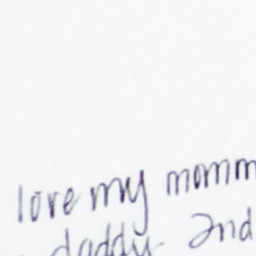 love my momm
daddy. And